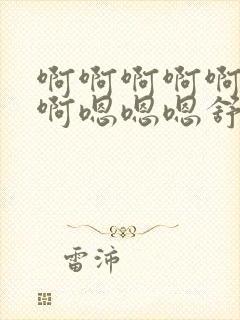 啊啊啊啊啊
啊嗯嗯嗯舒
雷沛